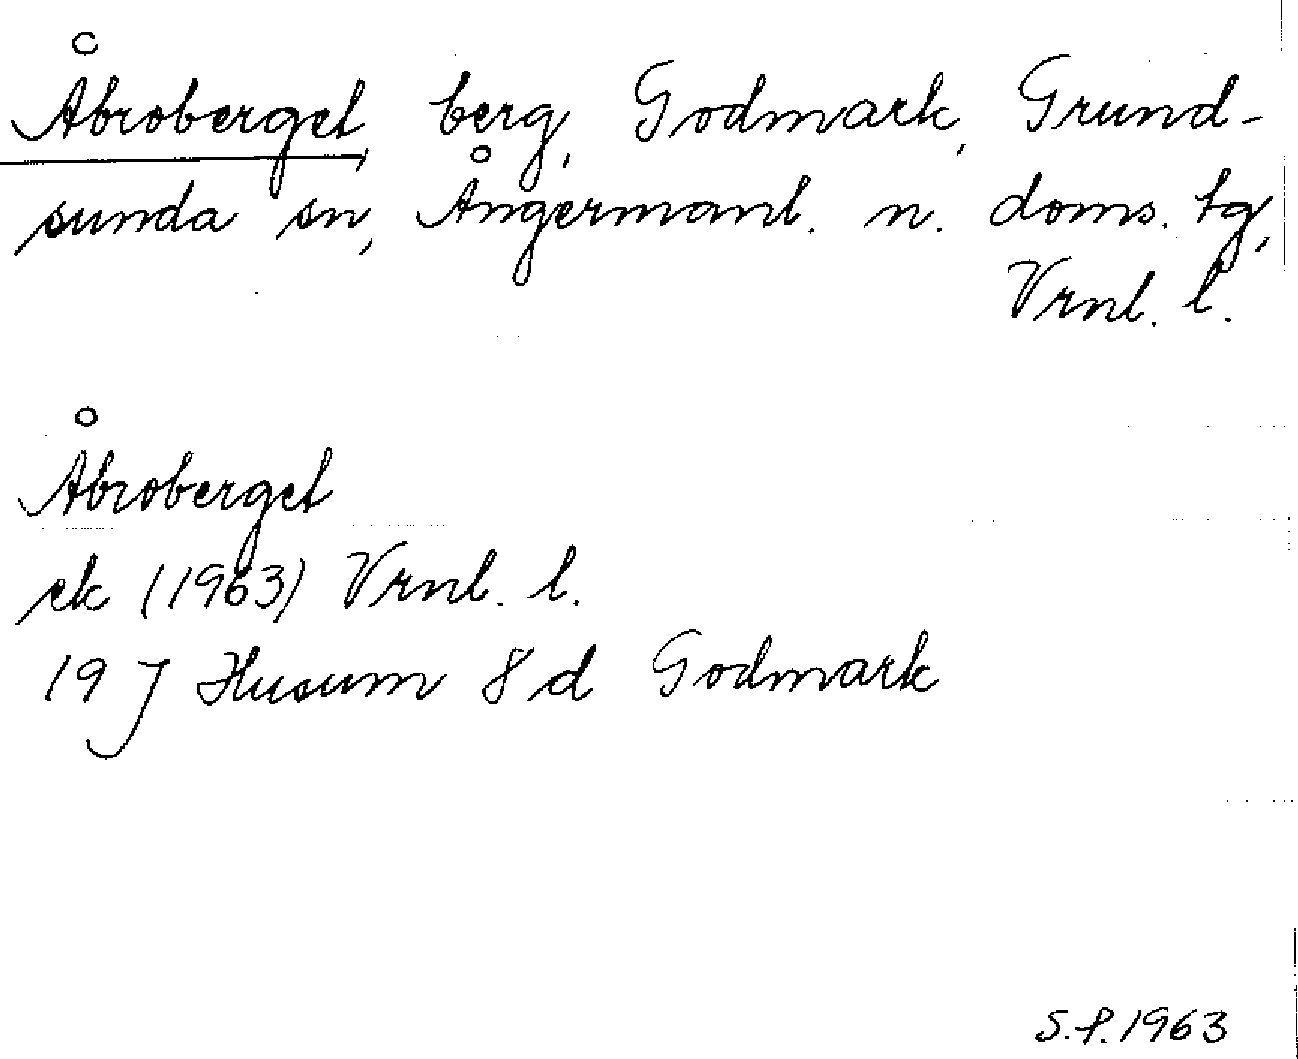 Åbroberget, berg, Godmark, Grund-
sunda sn, Ångermanl. n. doms. tg,
Vrnl. l.
Åbroberget
ek (1963) Vrnl. l.
19 J Husum 8 d Godmark
S.P. 1963